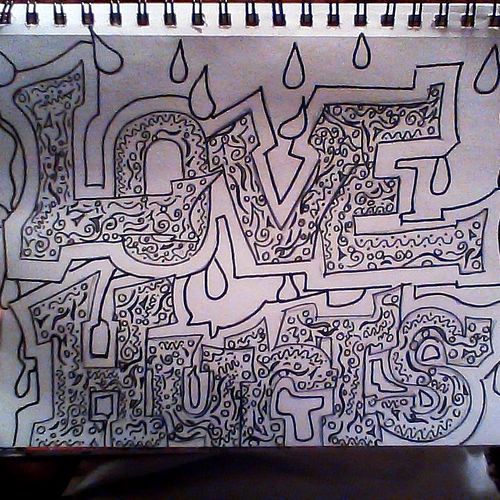 LOVE
HURTS